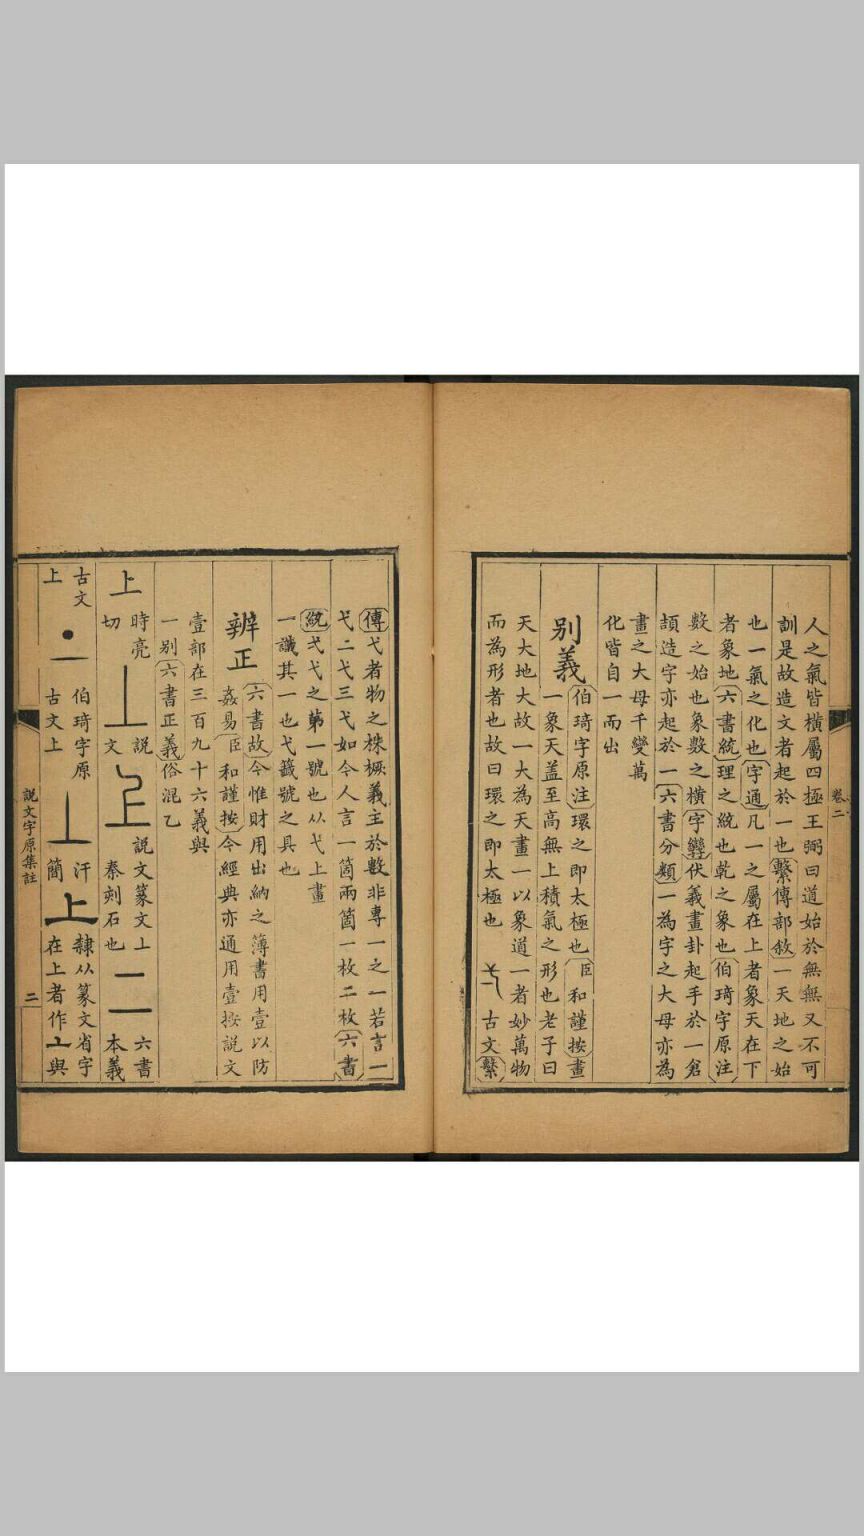 人之氣皆橫屬四極王弼曰道始於無無又不可
訓是故造文者起於一也繫傳部敘一天地之始
也一氣之化也字通凡一之屬在上者象天在下
者象地六書統理之統也乾之象也伯琦字原注
數之始也象數之橫字孿伏義畫卦起手於一倉
頡造字亦起於一六書分類一為字之大母亦為
畫之大母千變萬
化皆自一而出
别義
伯琦字原注環之即太極也臣和謹按畫
一象天蓋至高無上積氣之形也老子曰
天大地大故一大為天畫一以象道一者妙萬物
而為形者也故曰環之即太極也
古文繫
卷二
傳弋者物之株橛義主於數非專一之一若言一
弋二弋三弋如今人言一箇兩箇一枚二枚六書
統弌弋之第一號也从弋上畫
一讖其一也弋籤號之具也
辨正
六書故今惟財用出納之簿書用壹以防
姦易臣和謹按今經典亦通用壹按說文
壹部在三百九十六義與
一别六書正義俗混乙
上
時亮
切
丄
說
文
說文篆文丄
秦刻石也
二
六書
本義
古文
上
伯琦字原
古文上
丄
汗
簡
上
隸从篆文省字
在上者作亠與
說文字原集註
二